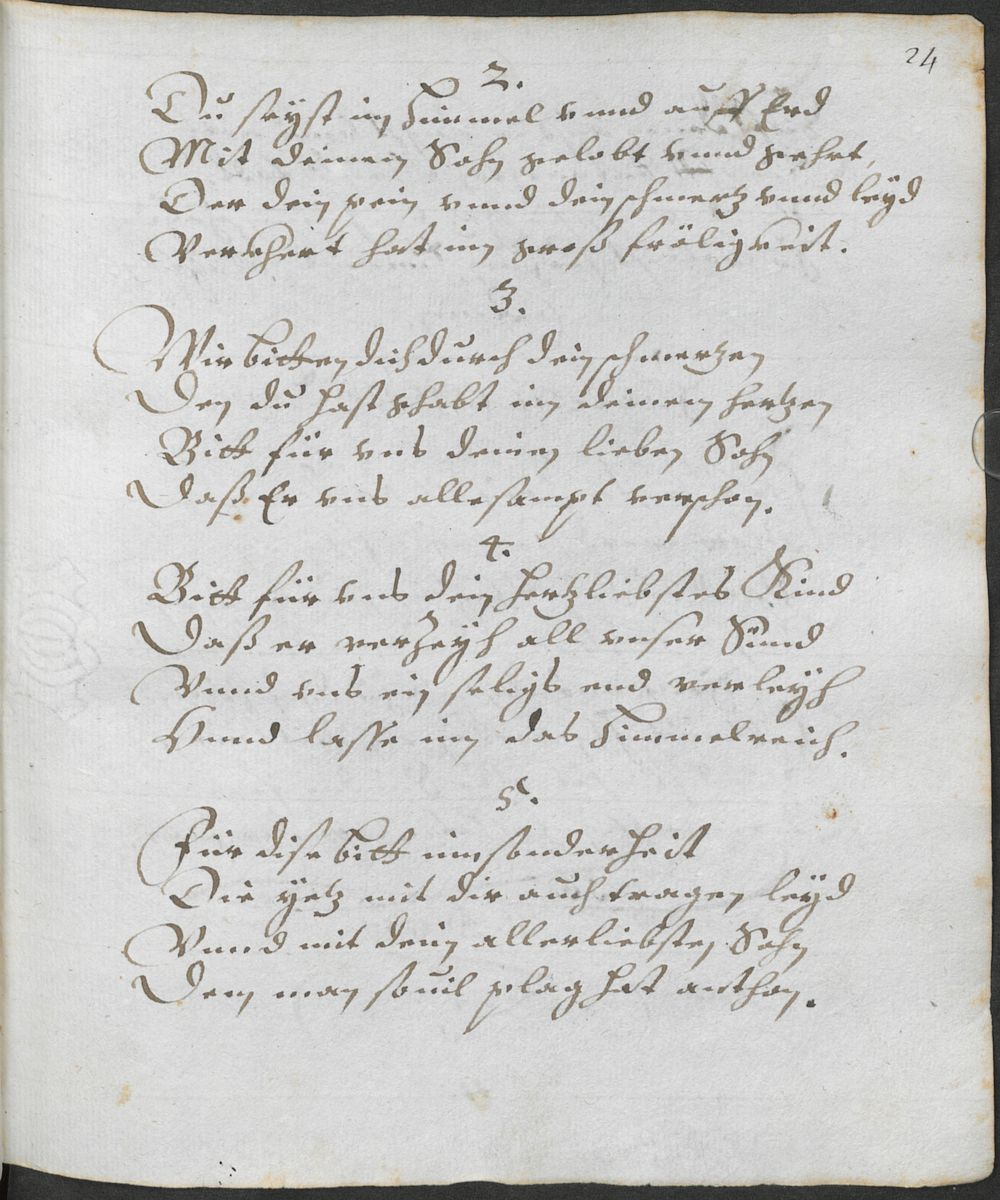 24
2.
Du seyst im Himmel vnnd auff Erd
Mit deinem Sohn gelobt vnnd geehrt,
Der dein pein vnnd dein schmertz vnnd leyd
Verkhert hat inn groß fröligkeit.
3.
Wir bitten dich durch dein schmertzen
Den du hast ghabt inn deinem hertzen
Bitt für vns deinen lieben Sohn
Daß Er vns allesampt verschon.
4.
Bitt für vns dein hertzliebstes Kind
Daß er verzeyh all vnser Sünd
Vnnd vns ein seligs end verleyh
Vnnd lasse inn das Himmelreich.
5.
Für dise bitt innsonderheit
Die yetz mit dir auch tragen leyd
Vnnd mit deim allerliebsten Sohn
Dem man souil plag hat anthon.